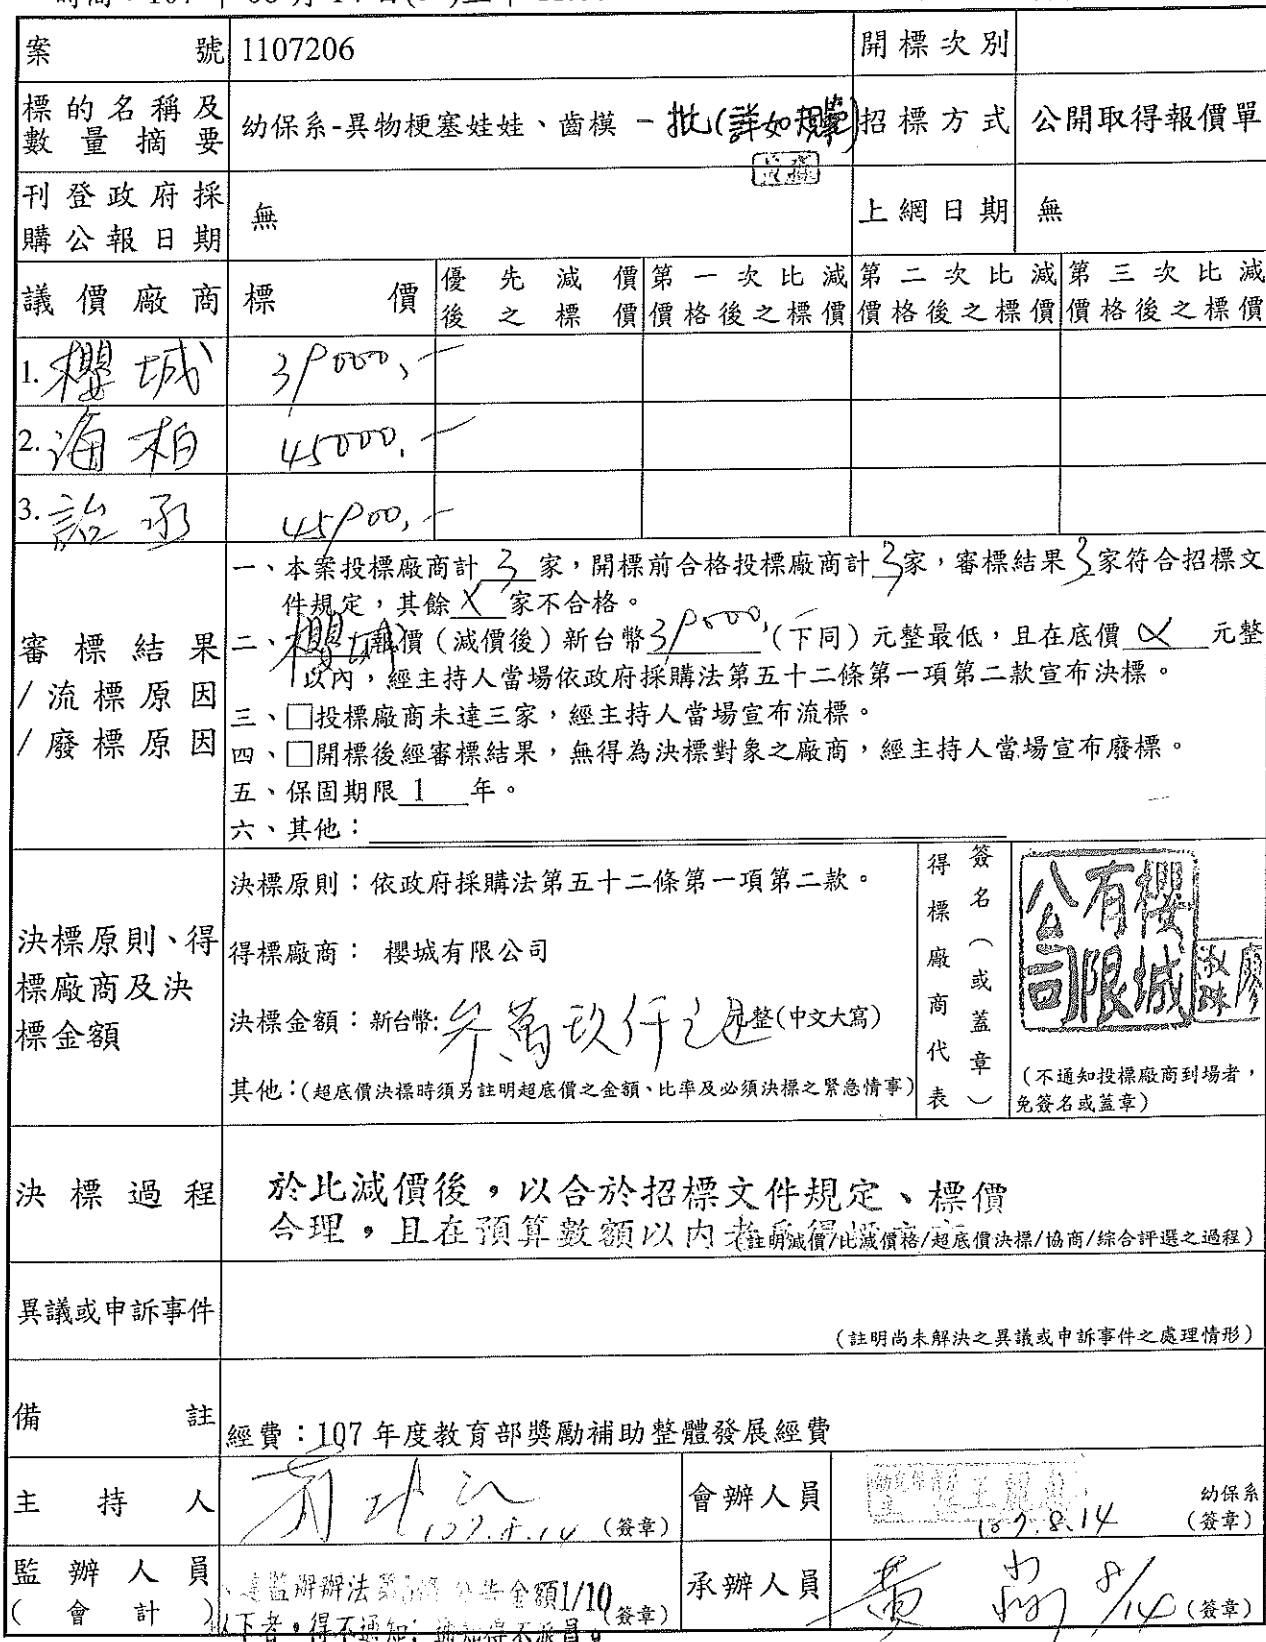 案號 1107206 開標次別
標的名稱及數量摘要 幼保系-異物梗塞娃娃、齒模 一批(詳如規單) 招標方式 公開取得報價單
刊登政府採購公報日期 無 上網日期 無
議價廠商 標價 優先減價後之標價 第一次比減價格後之標價 第二次比減價格後之標價 第三次比減價格後之標價
1. 櫻城 39000,-
2. 海柏 45000,-
3. 詒承
審標結果/流標原因/廢標原因
一、本案投標廠商計 3 家,開標前合格投標廠商計 3 家,審標結果 3 家符合招標文
件規定,其餘 X 家不合格。
二、櫻城報價(減價後)新台幣 39000, (下同)元整最低,且在底價 X 元整
以內,經主持人當場依政府採購法第五十二條第一項第二款宣布決標。
三、□投標廠商未達三家,經主持人當場宣布流標。
四、□開標後經審標結果,無得為決標對象之廠商,經主持人當場宣布廢標。
五、保固期限 1 年。
六、其他:
決標原則、得標廠商及決標金額
決標原則:依政府採購法第五十二條第一項第二款。
得標廠商: 櫻城有限公司
決標金額:新台幣:參萬玖仟元整(中文大寫)
其他:(超底價決標時須另註明超底價之金額、比率及必須決標之緊急情事)
得標廠商代表簽名(或蓋章)
櫻城有限公司
(不通知投標廠商到場者,
免簽名或蓋章)
決標過程
於比減價後,以合於招標文件規定、標價
合理,且在預算數額以內者為得標廠商
(註明減價/比減價格/超底價決標/協商/綜合評選之過程)
異議或申訴事件
(註明尚未解決之異議或申訴事件之處理情形)
備註 經費:107 年度教育部獎勵補助整體發展經費
主持人 107.8.14 (簽章) 會辦人員 107.8.14 幼保系(簽章)
監辦人員(會計) 監辦辦法 公告金額1/10
以下者,得不通知;通知得不派員。 (簽章)
承辦人員 黃 8/14 (簽章)